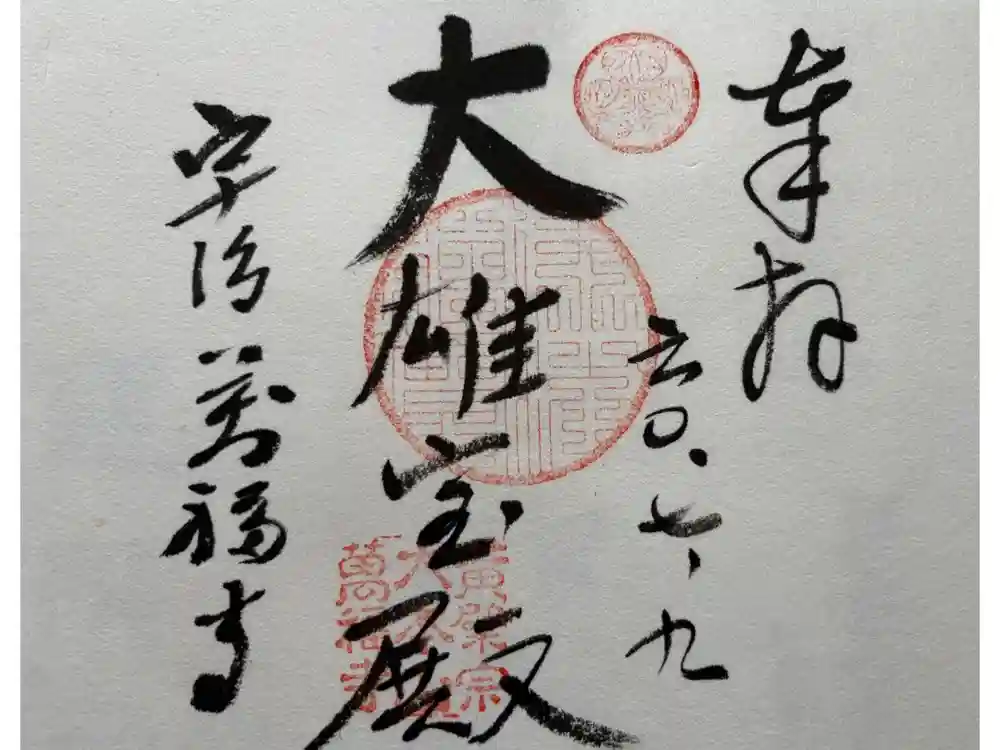 奉拝
六〇.七.九
大雄宝殿
宇治萬福寺
黄檗宗
大本山
萬福寺